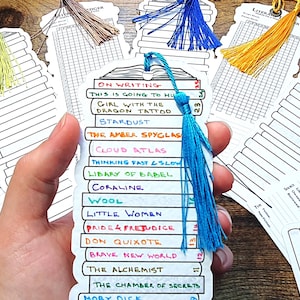 ON WRITING
THIS IS GOING TO HU
GIRL WITH THE
DRAGON TATTOO
STARDUST
THE AMBER SPYGLAS
CLOUD ATLAS
THINKING FAST & SLOW
LIBRARY OF BABEL
CORALINE
WOOL
LITTLE WOMEN
PRIDE & PREJUDICE
DON QUIXOTE
BRAVE NEW WORLD
THE ALCHEMIST
THE CHAMBER OF SECRETS
MOBY DICK